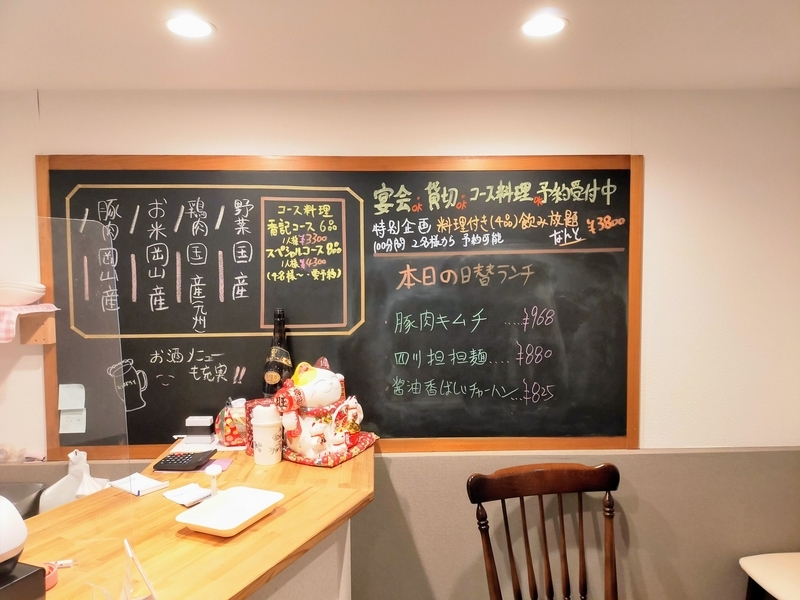 野菜 国産
鶏肉 国産(九州)
お米 岡山産
豚肉 岡山産
コース料理
香記コース 6品
1人様 ¥3300
スペシャルコース 8品
1人様 ¥4300
(4名様〜・要予約)
お酒メニュー
も充実!!
宴会ok 貸切ok コース料理ok 予約受付中
特別企画 料理付き(4品)飲み放題 ¥3800
100分間 2名様から 予約可能 なんと
本日の日替ランチ
豚肉キムチ ....¥968
四川担担麺....¥880
醤油香ばしいチャーハン...¥825